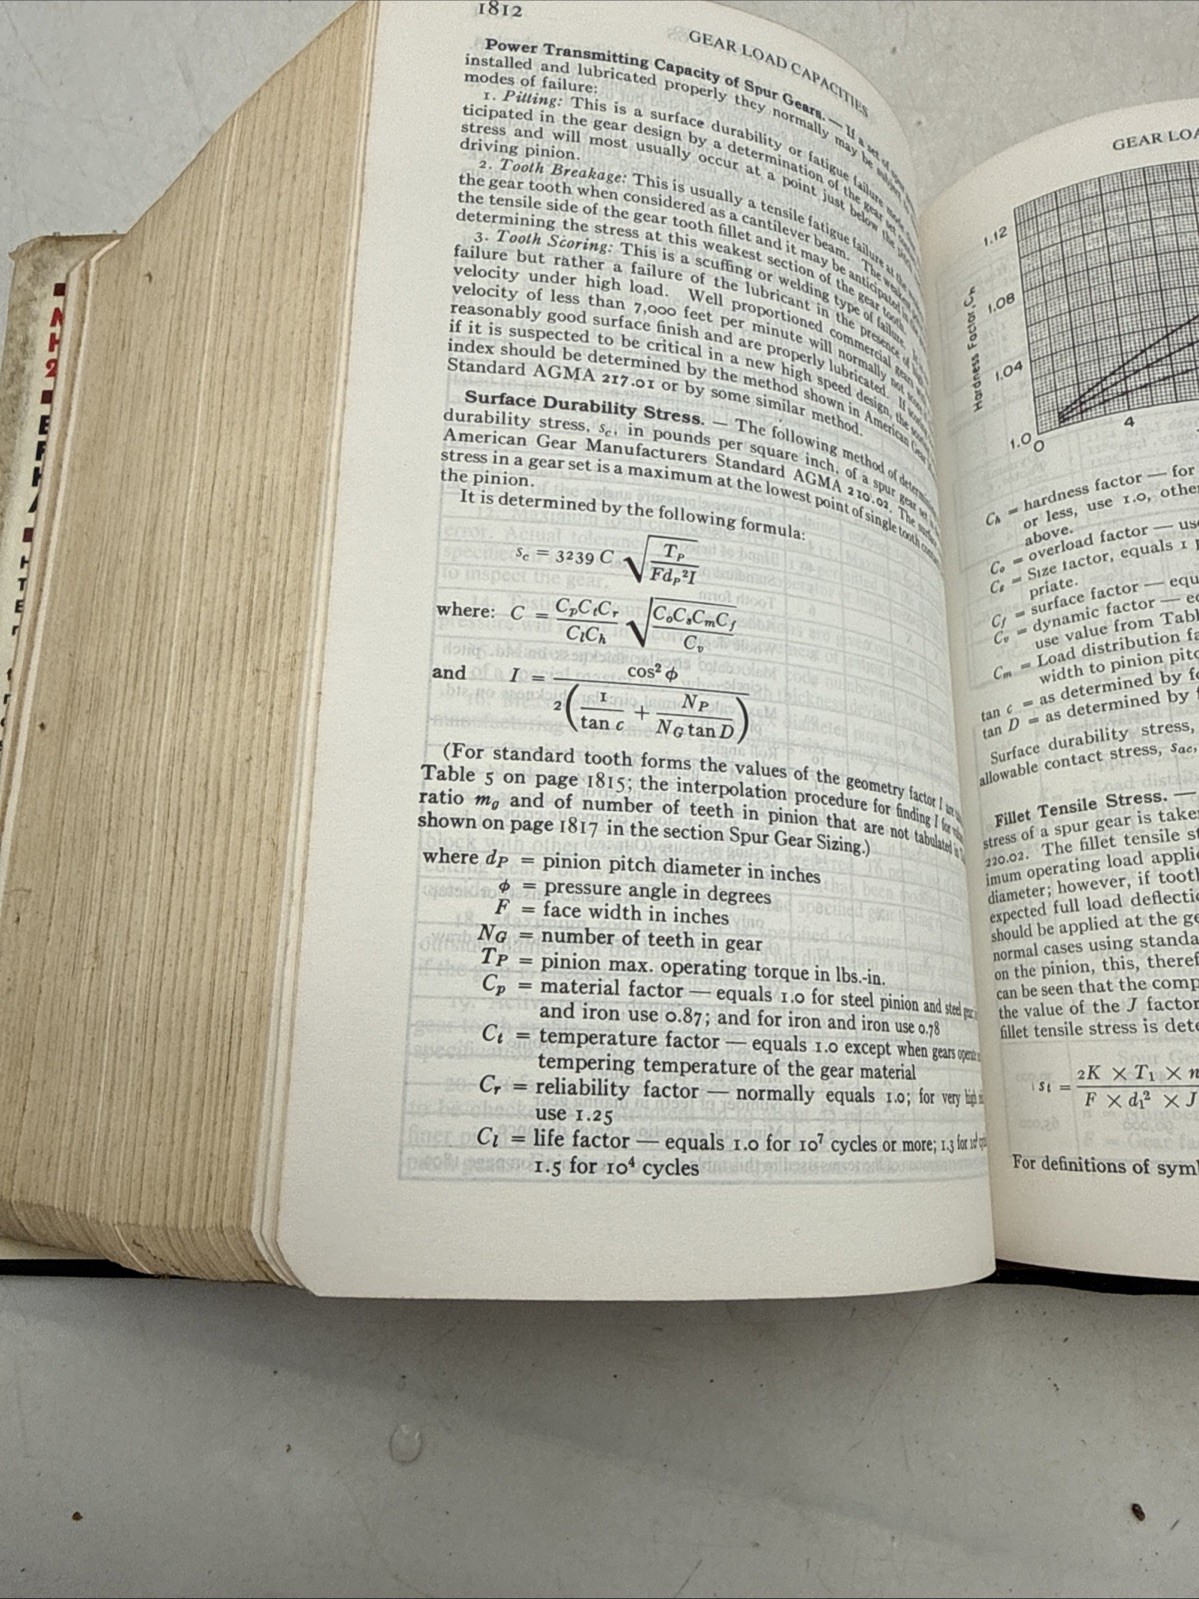 1812
GEAR LOAD CAPACITIES
Power Transmitting Capacity of Spur Gears. — If a set of
installed and lubricated properly they normally may be
modes of failure:
1. Pitting: This is a surface durability or fatigue failure
ticipated in the gear design by a determination of the gear set
stress and will most usually occur at a point just below the
driving pinion.
2. Tooth Breakage: This is usually a tensile fatigue failure at the
the gear tooth when considered as a cantilever beam. The weakest
the tensile side of the gear tooth fillet and it may be anticipated
determining the stress at this weakest section of the gear tooth
3. Tooth Scoring: This is a scuffing or welding type of failure.
failure but rather a failure of the lubricant in the presence of
velocity under high load. Well proportioned commercial gears
velocity of less than 7,000 feet per minute will normally not
reasonably good surface finish and are properly lubricated. If
if it is suspected to be critical in a new high speed design, the
index should be determined by the method shown in American Gear
Standard AGMA 217.01 or by some similar method.
Surface Durability Stress. — The following method of
durability stress, sc, in pounds per square inch, of a spur gear set
American Gear Manufacturers Standard AGMA 210.02. The surface
stress in a gear set is a maximum at the lowest point of single tooth
the pinion.
It is determined by the following formula:
sc = 3239 C √(TP / FdP²I)
where: C = CpCtCr / ClCh √(CoCsCmCf / Cv)
and I = cos² φ / 2(1 / tan c + NP / NG tan D)
(For standard tooth forms the values of the geometry factor I
Table 5 on page 1815; the interpolation procedure for finding I for
ratio mg and of number of teeth in pinion that are not tabulated
shown on page 1817 in the section Spur Gear Sizing.)
where dP = pinion pitch diameter in inches
φ = pressure angle in degrees
F = face width in inches
NG = number of teeth in gear
TP = pinion max. operating torque in lbs.-in.
Cp = material factor — equals 1.0 for steel pinion and steel
and iron use 0.87; and for iron and iron use 0.78
Ct = temperature factor — equals 1.0 except when gears operate
tempering temperature of the gear material
Cr = reliability factor — normally equals 1.0; for very high
use 1.25
Cl = life factor — equals 1.0 for 10⁷ cycles or more; 1.3 for
1.5 for 10⁴ cycles
GEAR LOA
1.12
1.08
1.04
1.0
0
4
Hardness Factor, Ch
Ch = hardness factor — for
or less, use 1.0, other
above.
Co = overload factor — use
Cs = Size factor, equals 1
priate.
Cf = surface factor — equ
Cv = dynamic factor — e
use value from Tab
Cm = Load distribution fa
width to pinion pit
tan c = as determined by fo
tan D = as determined by
Surface durability stress,
allowable contact stress, sac,
Fillet Tensile Stress. —
stress of a spur gear is take
220.02. The fillet tensile s
imum operating load appli
diameter; however, if tooth
expected full load deflecti
should be applied at the ge
normal cases using standa
on the pinion, this, theref
can be seen that the comp
the value of the J factor
fillet tensile stress is dete
st = 2K × T1 × / F × d1² × J
For definitions of sym